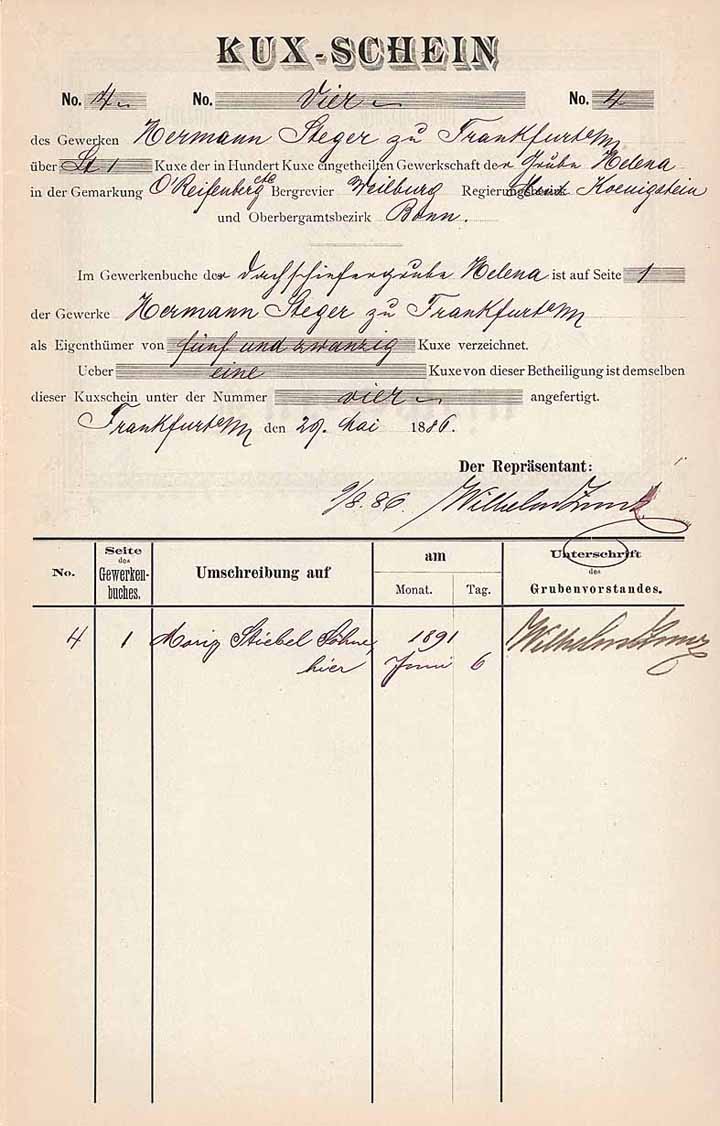 KUX-SCHEIN
No. 4 No. Vier No. 4
des Gewerken Hermann Steger zu Frankfurt a/M
über St 1 Kuxe der in Hundert Kuxe eingetheilten Gewerkschaft der Grube Helena
in der Gemarkung O'Reifenberg etc Bergrevier Weilburg Regierungsbezirk Koenigstein
und Oberbergamtsbezirk Bonn.
Im Gewerkenbuche der Dachschiefergrube Helena ist auf Seite 1
der Gewerke Hermann Steger zu Frankfurt a/M
als Eigenthümer von fünf und zwanzig Kuxe verzeichnet.
Ueber eine Kuxe von dieser Betheiligung ist demselben
dieser Kuxschein unter der Nummer vier angefertigt.
Frankfurt a/M den 29. Mai 1886.
Der Repräsentant:
9/8.86. Wilhelm
No. Seite des Gewerken-buches. Umschreibung auf am Monat. Tag. Unterschrift des Grubenvorstandes.
4 1 Moriz Stiebel Söhne, 1891 Wilhelm
hier Juni 6